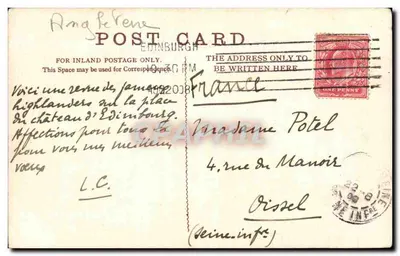 Angleterre
POST CARD
EDINBURGH
FOR INLAND POSTAGE ONLY.
This Space may be used for Correspondence.
THE ADDRESS ONLY TO
BE WRITTEN HERE.
France
Voici une revue de fameux
highlanders sur la place
du château d'Edimbourg.
Affections pour tous
pour vous mes meilleurs
L.C.
Madame Potel
4, rue du Manoir
Oissel
(Seine-infre)